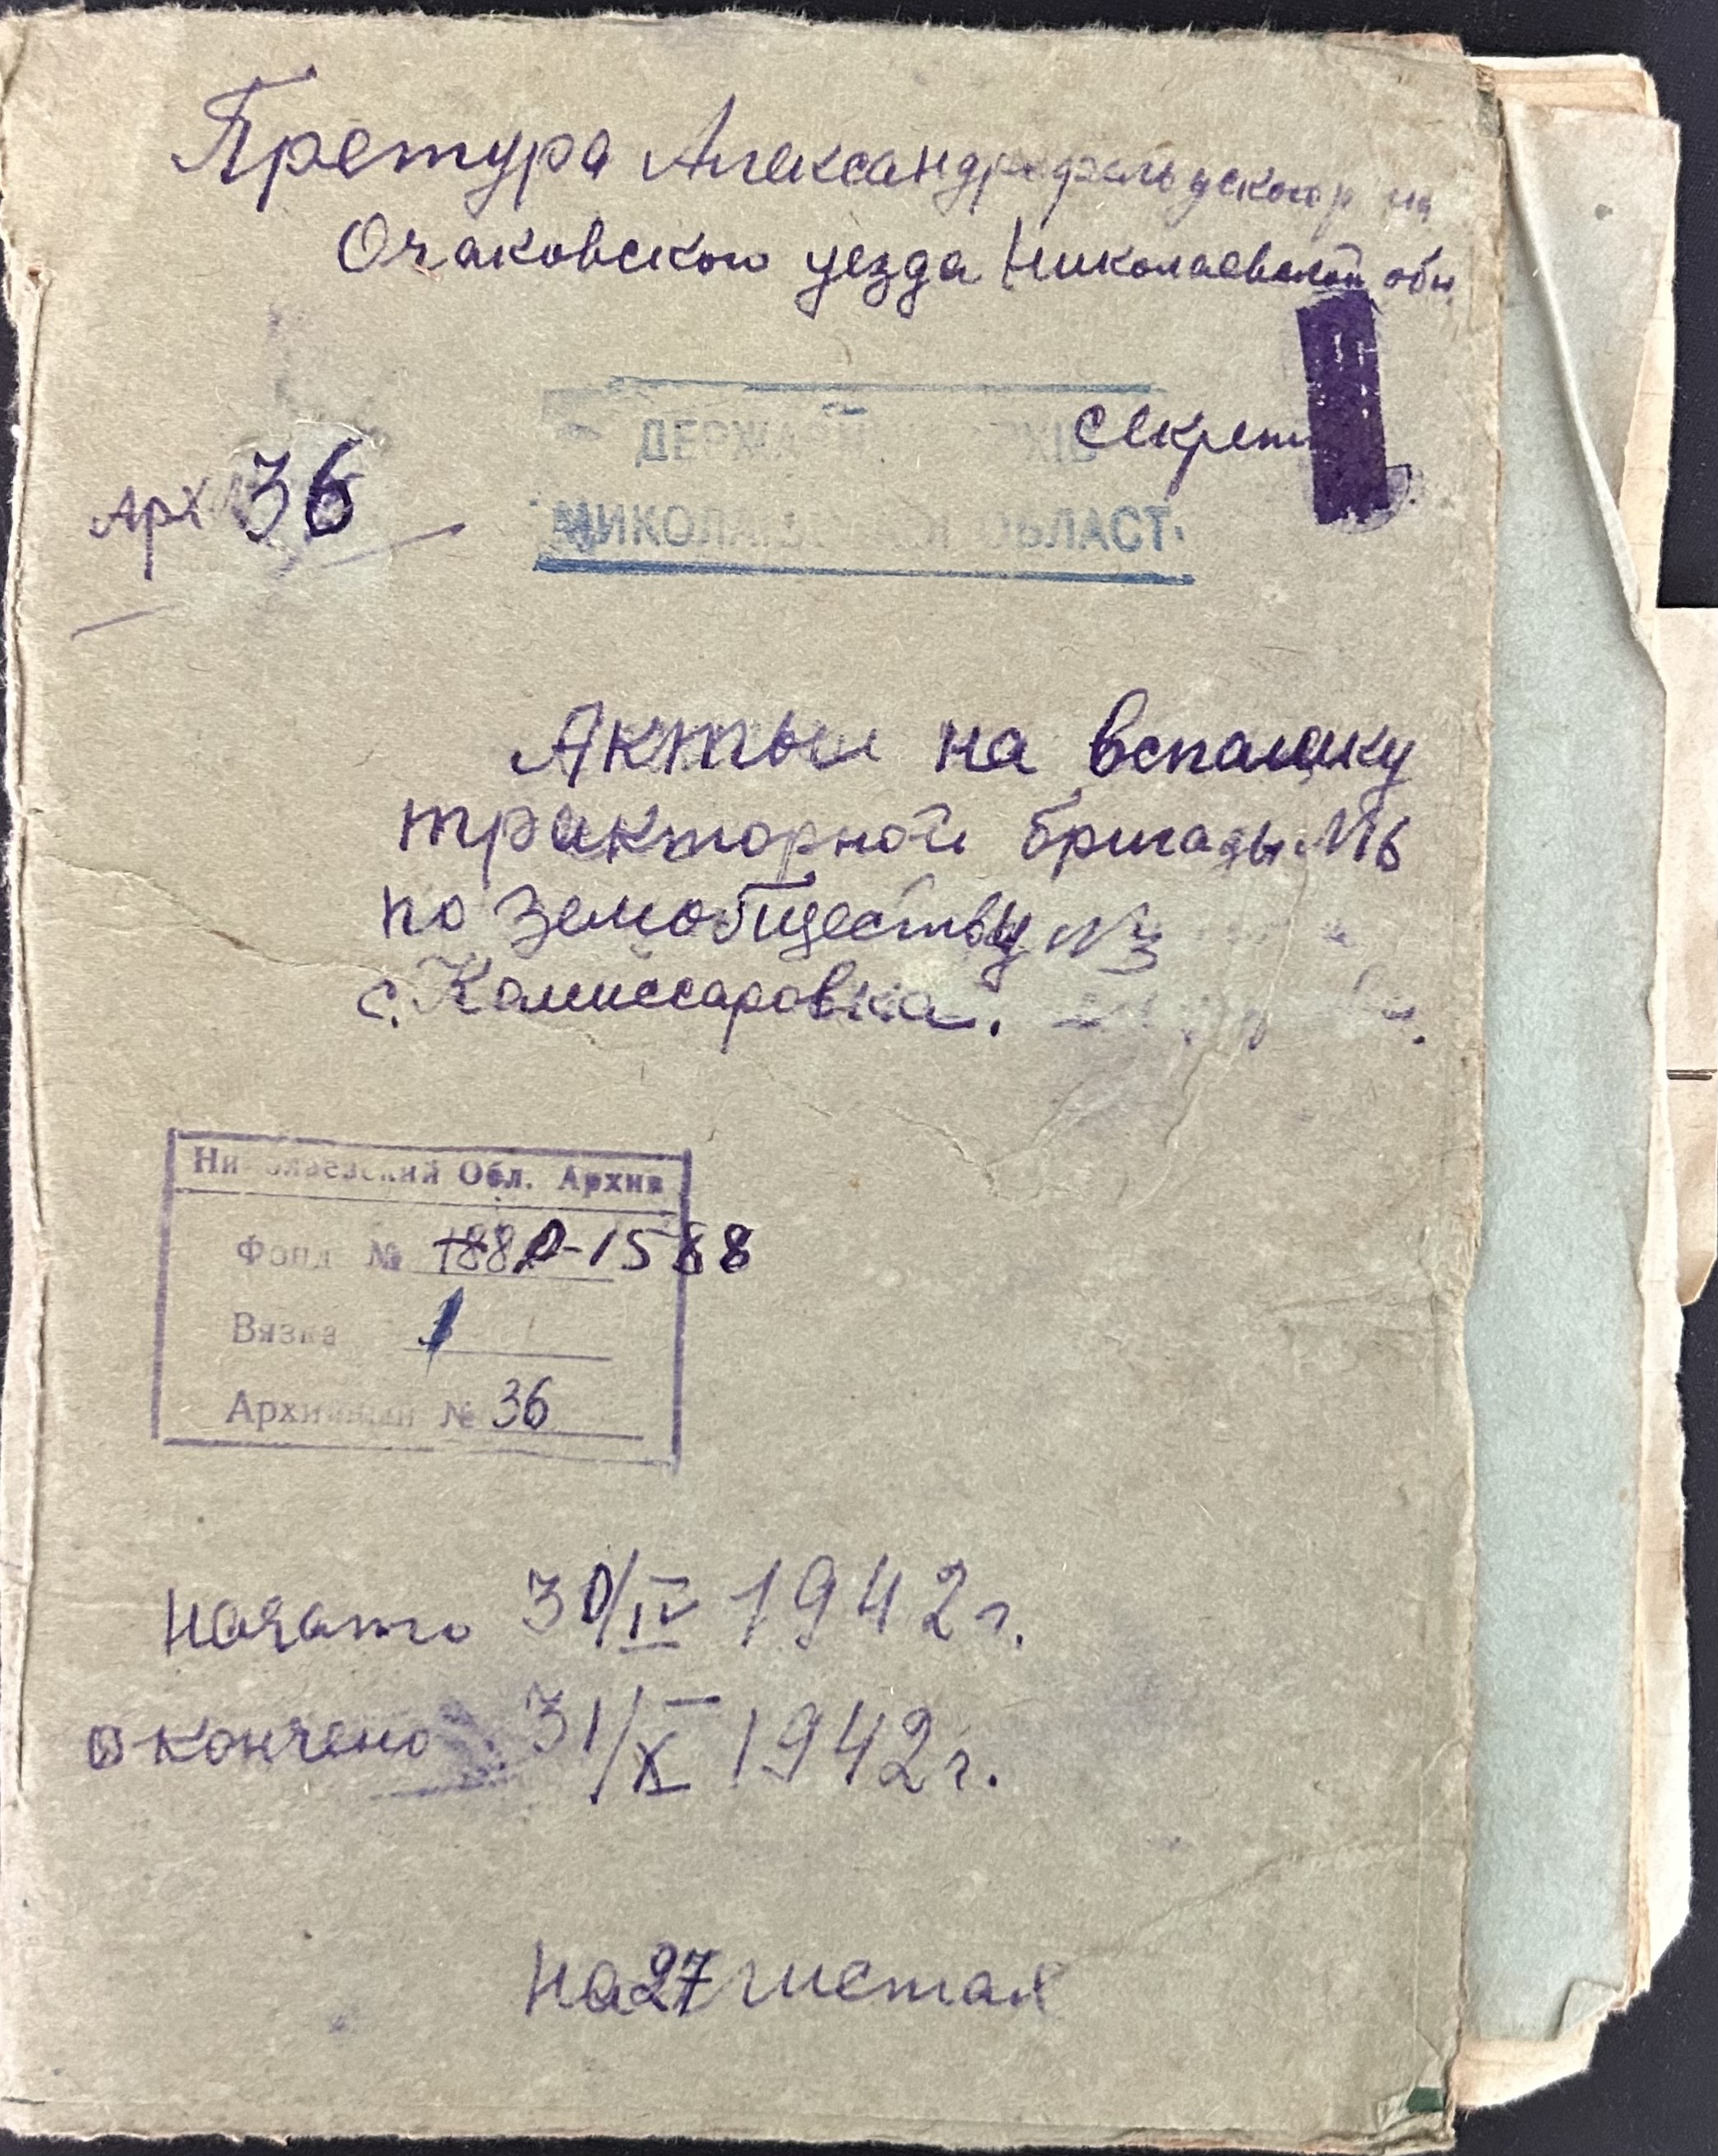 Претура Александрфельдского р на
Очаковского уезда Николаевской обл
Секрет
ДЕРЖА
МИКОЛА ОБЛАСТ
Арх 36
Акты на вспашку
тракторной бригады №6
по земобществу №3
с. Комиссаровка.
Николаевский Обл. Архив
Фонд № 1882 Р-1588
Вязка 1
Архивный № 36
Начато 30/IV 1942 г.
окончено 31/X 1942 г.
На 27 листах